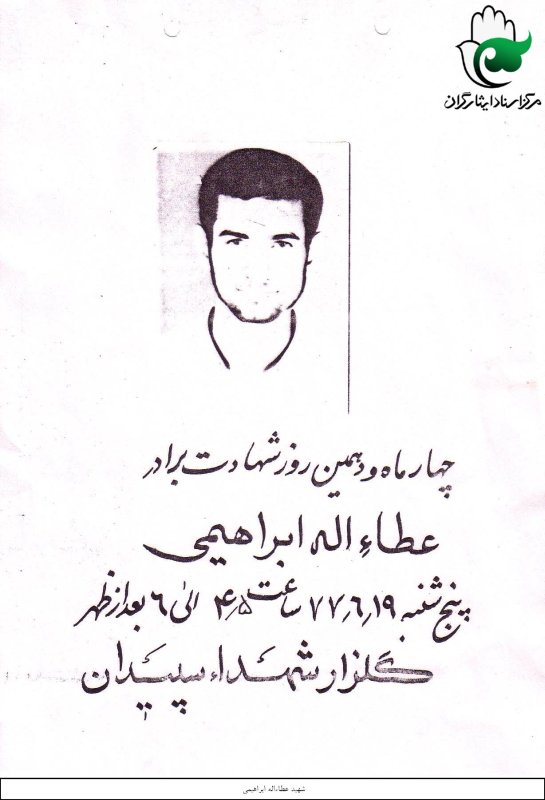 مرکز اسناد ایثارگران
چهار ماه و دهمین روز شهادت برادر
عطاءِ اله ابراهیمی
پنج شنبه ۷۷٫۶٫۱۹ ساعت ۴٫۵ الی ۶ بعد از ظهر
گلزار شهداء سپیدان
شهید عطاءاله ابراهیمی